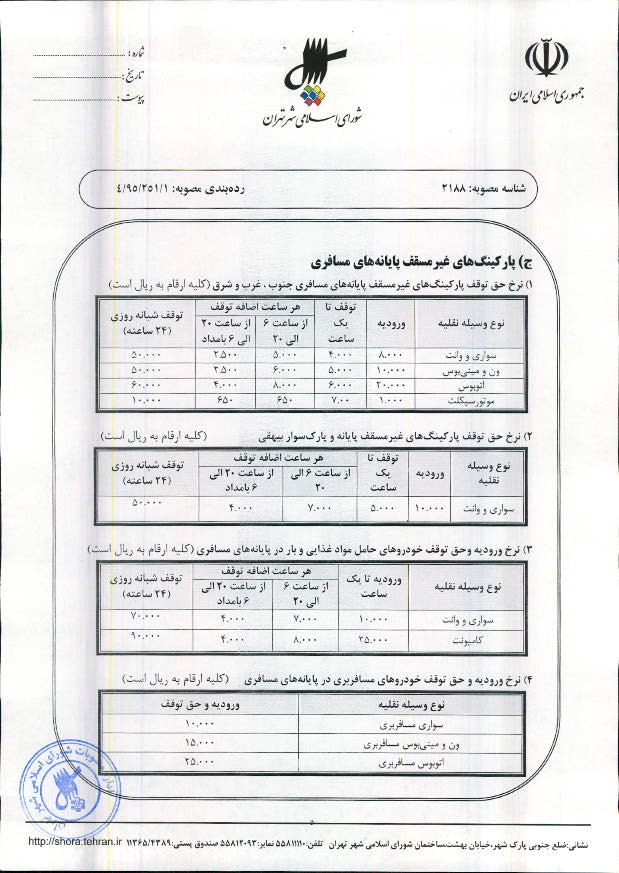 جمهوری اسلامی ایران
شورای اسلامی شهر تهران
شماره :
تاریخ :
پیوست :
شناسه مصوبه: ۲۱۸۸ رده‌بندی مصوبه: ۴/۹۵/۲۵۱/۱
ج) پارکینگ‌های غیرمسقف پایانه‌های مسافری
۱) نرخ حق توقف پارکینگ‌های غیرمسقف پایانه‌های مسافری جنوب، غرب و شرق (کلیه ارقام به ریال است)
نوع وسیله نقلیه ورودیه توقف تا یک ساعت هر ساعت اضافه توقف توقف شبانه روزی (۲۴ ساعته)
از ساعت ۶ الی ۲۰ از ساعت ۲۰ الی ۶ بامداد
سواری و وانت ۸.۰۰۰ ۴.۰۰۰ ۵.۰۰۰ ۲.۵۰۰ ۵۰.۰۰۰
ون و مینی‌بوس ۱۰.۰۰۰ ۵.۰۰۰ ۶.۰۰۰ ۲.۵۰۰ ۵۰.۰۰۰
اتوبوس ۲۰.۰۰۰ ۶.۰۰۰ ۸.۰۰۰ ۴.۰۰۰ ۶۰.۰۰۰
موتورسیکلت ۱.۰۰۰ ۷.۰۰ ۶۵۰ ۶۵۰ ۱۰.۰۰۰
۲) نرخ حق توقف پارکینگ‌های غیرمسقف پایانه و پارک‌سوار بیهقی (کلیه ارقام به ریال است)
نوع وسیله نقلیه ورودیه توقف تا یک ساعت هر ساعت اضافه توقف توقف شبانه روزی (۲۴ ساعته)
از ساعت ۶ الی ۲۰ از ساعت ۲۰ الی ۶ بامداد
سواری و وانت ۱۰.۰۰۰ ۵.۰۰۰ ۷.۰۰۰ ۴.۰۰۰ ۵۰.۰۰۰
۳) نرخ ورودیه وحق توقف خودروهای حامل مواد غذایی و بار در پایانه‌های مسافری (کلیه ارقام به ریال است)
نوع وسیله نقلیه ورودیه تا یک ساعت هر ساعت اضافه توقف توقف شبانه روزی (۲۴ ساعته)
از ساعت ۶ الی ۲۰ از ساعت ۲۰ الی ۶ بامداد
سواری و وانت ۱۰.۰۰۰ ۷.۰۰۰ ۴.۰۰۰ ۷۰.۰۰۰
کامیونت ۲۵.۰۰۰ ۸.۰۰۰ ۴.۰۰۰ ۹۰.۰۰۰
۴) نرخ ورودیه و حق توقف خودروهای مسافربری در پایانه‌های مسافری (کلیه ارقام به ریال است)
نوع وسیله نقلیه ورودیه و حق توقف
سواری مسافربری ۱۰.۰۰۰
ون و مینی‌بوس مسافربری ۱۵.۰۰۰
اتوبوس مسافربری ۲۵.۰۰۰
۵
نشانی:ضلع جنوبی پارک شهر،خیابان بهشت،ساختمان شورای اسلامی شهر تهران تلفن:۵۵۸۱۱۱۱۰ نمابر:۵۵۸۱۲۰۹۳ صندوق پستی:۱۱۳۶۵/۴۳۸۹ http://shora.tehran.ir